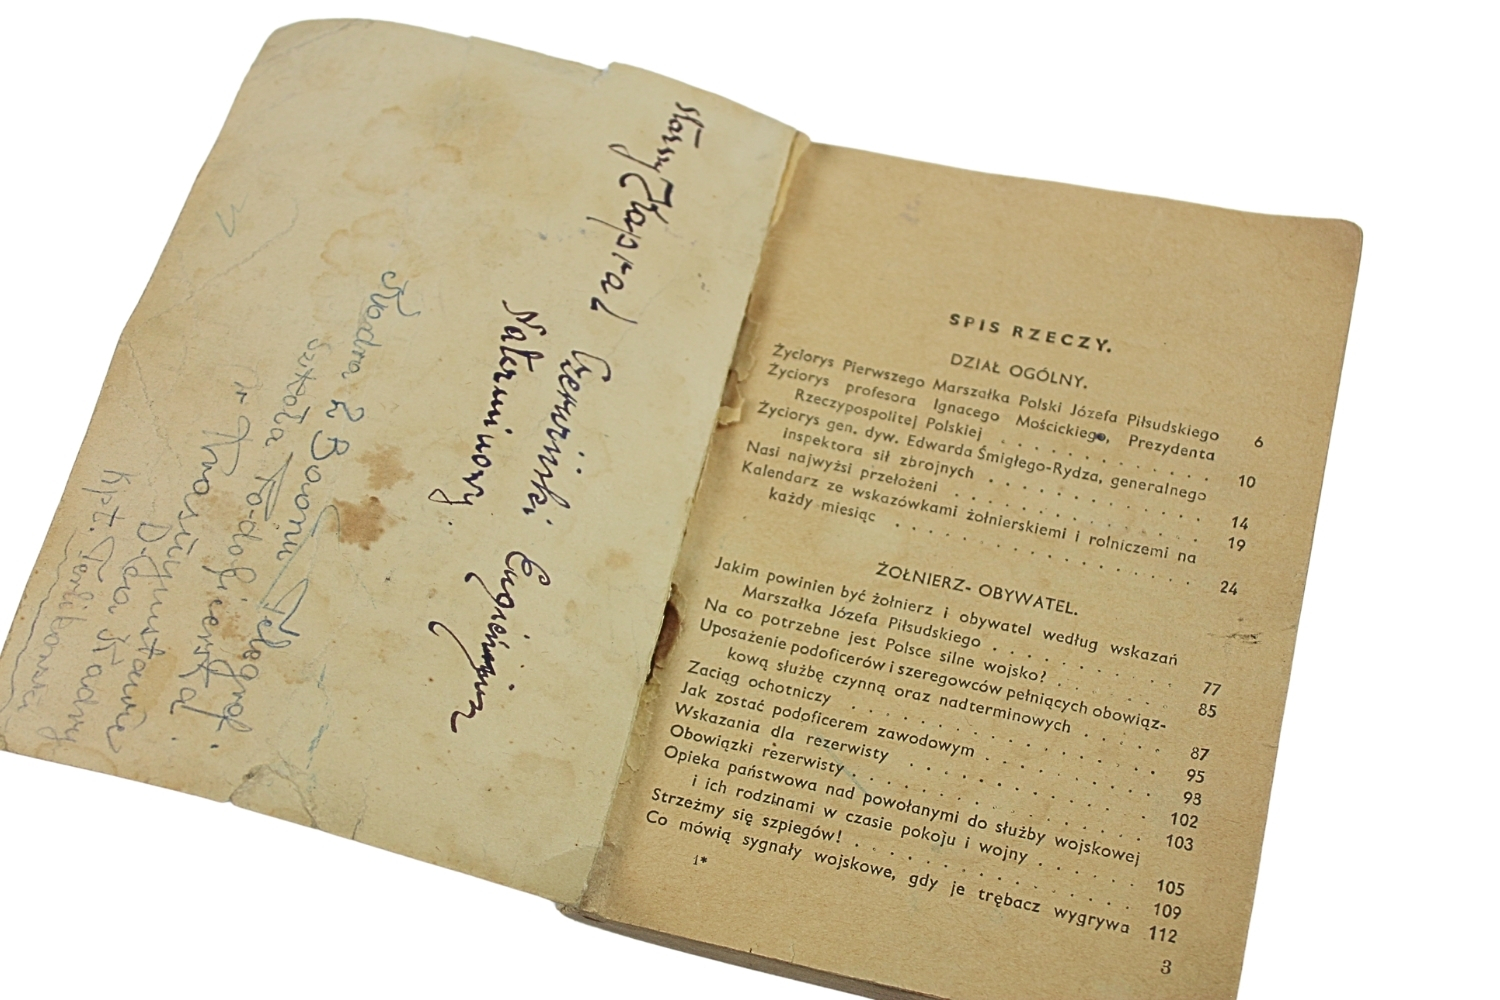 starszy Kapral
Czerwiński Eugeniusz
Naterminowy.
Kadra 2 Baonu Telegraf.
Szkoła Podoficerska
w Krasnymstawie
D-ca Kadry
kpt.
SPIS RZECZY.
DZIAŁ OGÓLNY.
Życiorys Pierwszego Marszałka Polski Józefa Piłsudskiego 6
Życiorys profesora Ignacego Mościckiego, Prezydenta
Rzeczypospolitej Polskiej . . . . . . . . . . . 10
Życiorys gen. dyw. Edwarda Śmigłego-Rydza, generalnego
inspektora sił zbrojnych . . . . . . . . . . . 14
Nasi najwyżsi przełożeni . . . . . . . . . . . . 19
Kalendarz ze wskazówkami żołnierskiemi i rolniczemi na
każdy miesiąc . . . . . . . . . . . . . . 24
ŻOŁNIERZ- OBYWATEL.
Jakim powinien być żołnierz i obywatel według wskazań
Marszałka Józefa Piłsudskiego . . . . . . . . 77
Na co potrzebne jest Polsce silne wojsko? . . . . . . 85
Uposażenie podoficerów i szeregowców pełniących obowiąz-
kową służbę czynną oraz nadterminowych . . . . . 87
Zaciąg ochotniczy . . . . . . . . . . . . . . 95
Jak zostać podoficerem zawodowym . . . . . . . . 93
Wskazania dla rezerwisty . . . . . . . . . . . . 102
Obowiązki rezerwisty . . . . . . . . . . . . . 103
Opieka państwowa nad powołanymi do służby wojskowej
i ich rodzinami w czasie pokoju i wojny . . . . . 105
Strzeżmy się szpiegów! . . . . . . . . . . . . 109
Co mówią sygnały wojskowe, gdy je trębacz wygrywa 112
1*
3